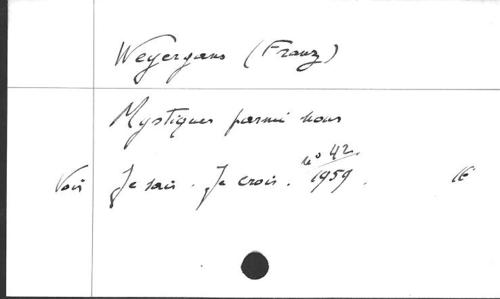 Weyergans (Franz)
Mystiques parmi nous
Voir Je sais. Je crois. n° 42. 1959.